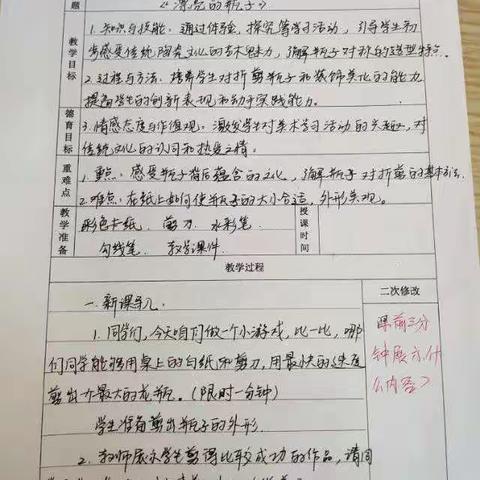 题
《漂亮的瓶子》
教学目标
1. 知识与技能：通过体验、探究等学习活动，引导学生初
步感受传统陶瓷文化的艺术魅力，了解瓶子对称的造型特点。
2. 过程与方法：培养学生对折剪瓶子和装饰美化的能力
提高学生的创新表现和动手实践能力。
德育目标
3. 情感态度与价值观：激发学生对美术学习活动的兴趣，对
传统文化的认同和热爱之情。
重难点
1. 重点：感受瓶子背后蕴含的文化，了解瓶子对折剪的基本方法。
2. 难点：在纸上如何使瓶子的大小合适，外形美观。
教学准备
彩色卡纸、剪刀、水彩笔、
勾线笔、教学课件
授课时间
教学过程
二次修改
一. 新课导入
1. 同学们，今天咱们做一个小游戏，比一比，哪
们同学能够用桌上的白纸和剪刀，用最快的速度
剪出一个最大的花瓶。（限时一分钟）
学生准备剪出瓶子的外形
2. 教师展示学生剪得比较成功的作品，请同
课前三分
钟展示什
么内容？